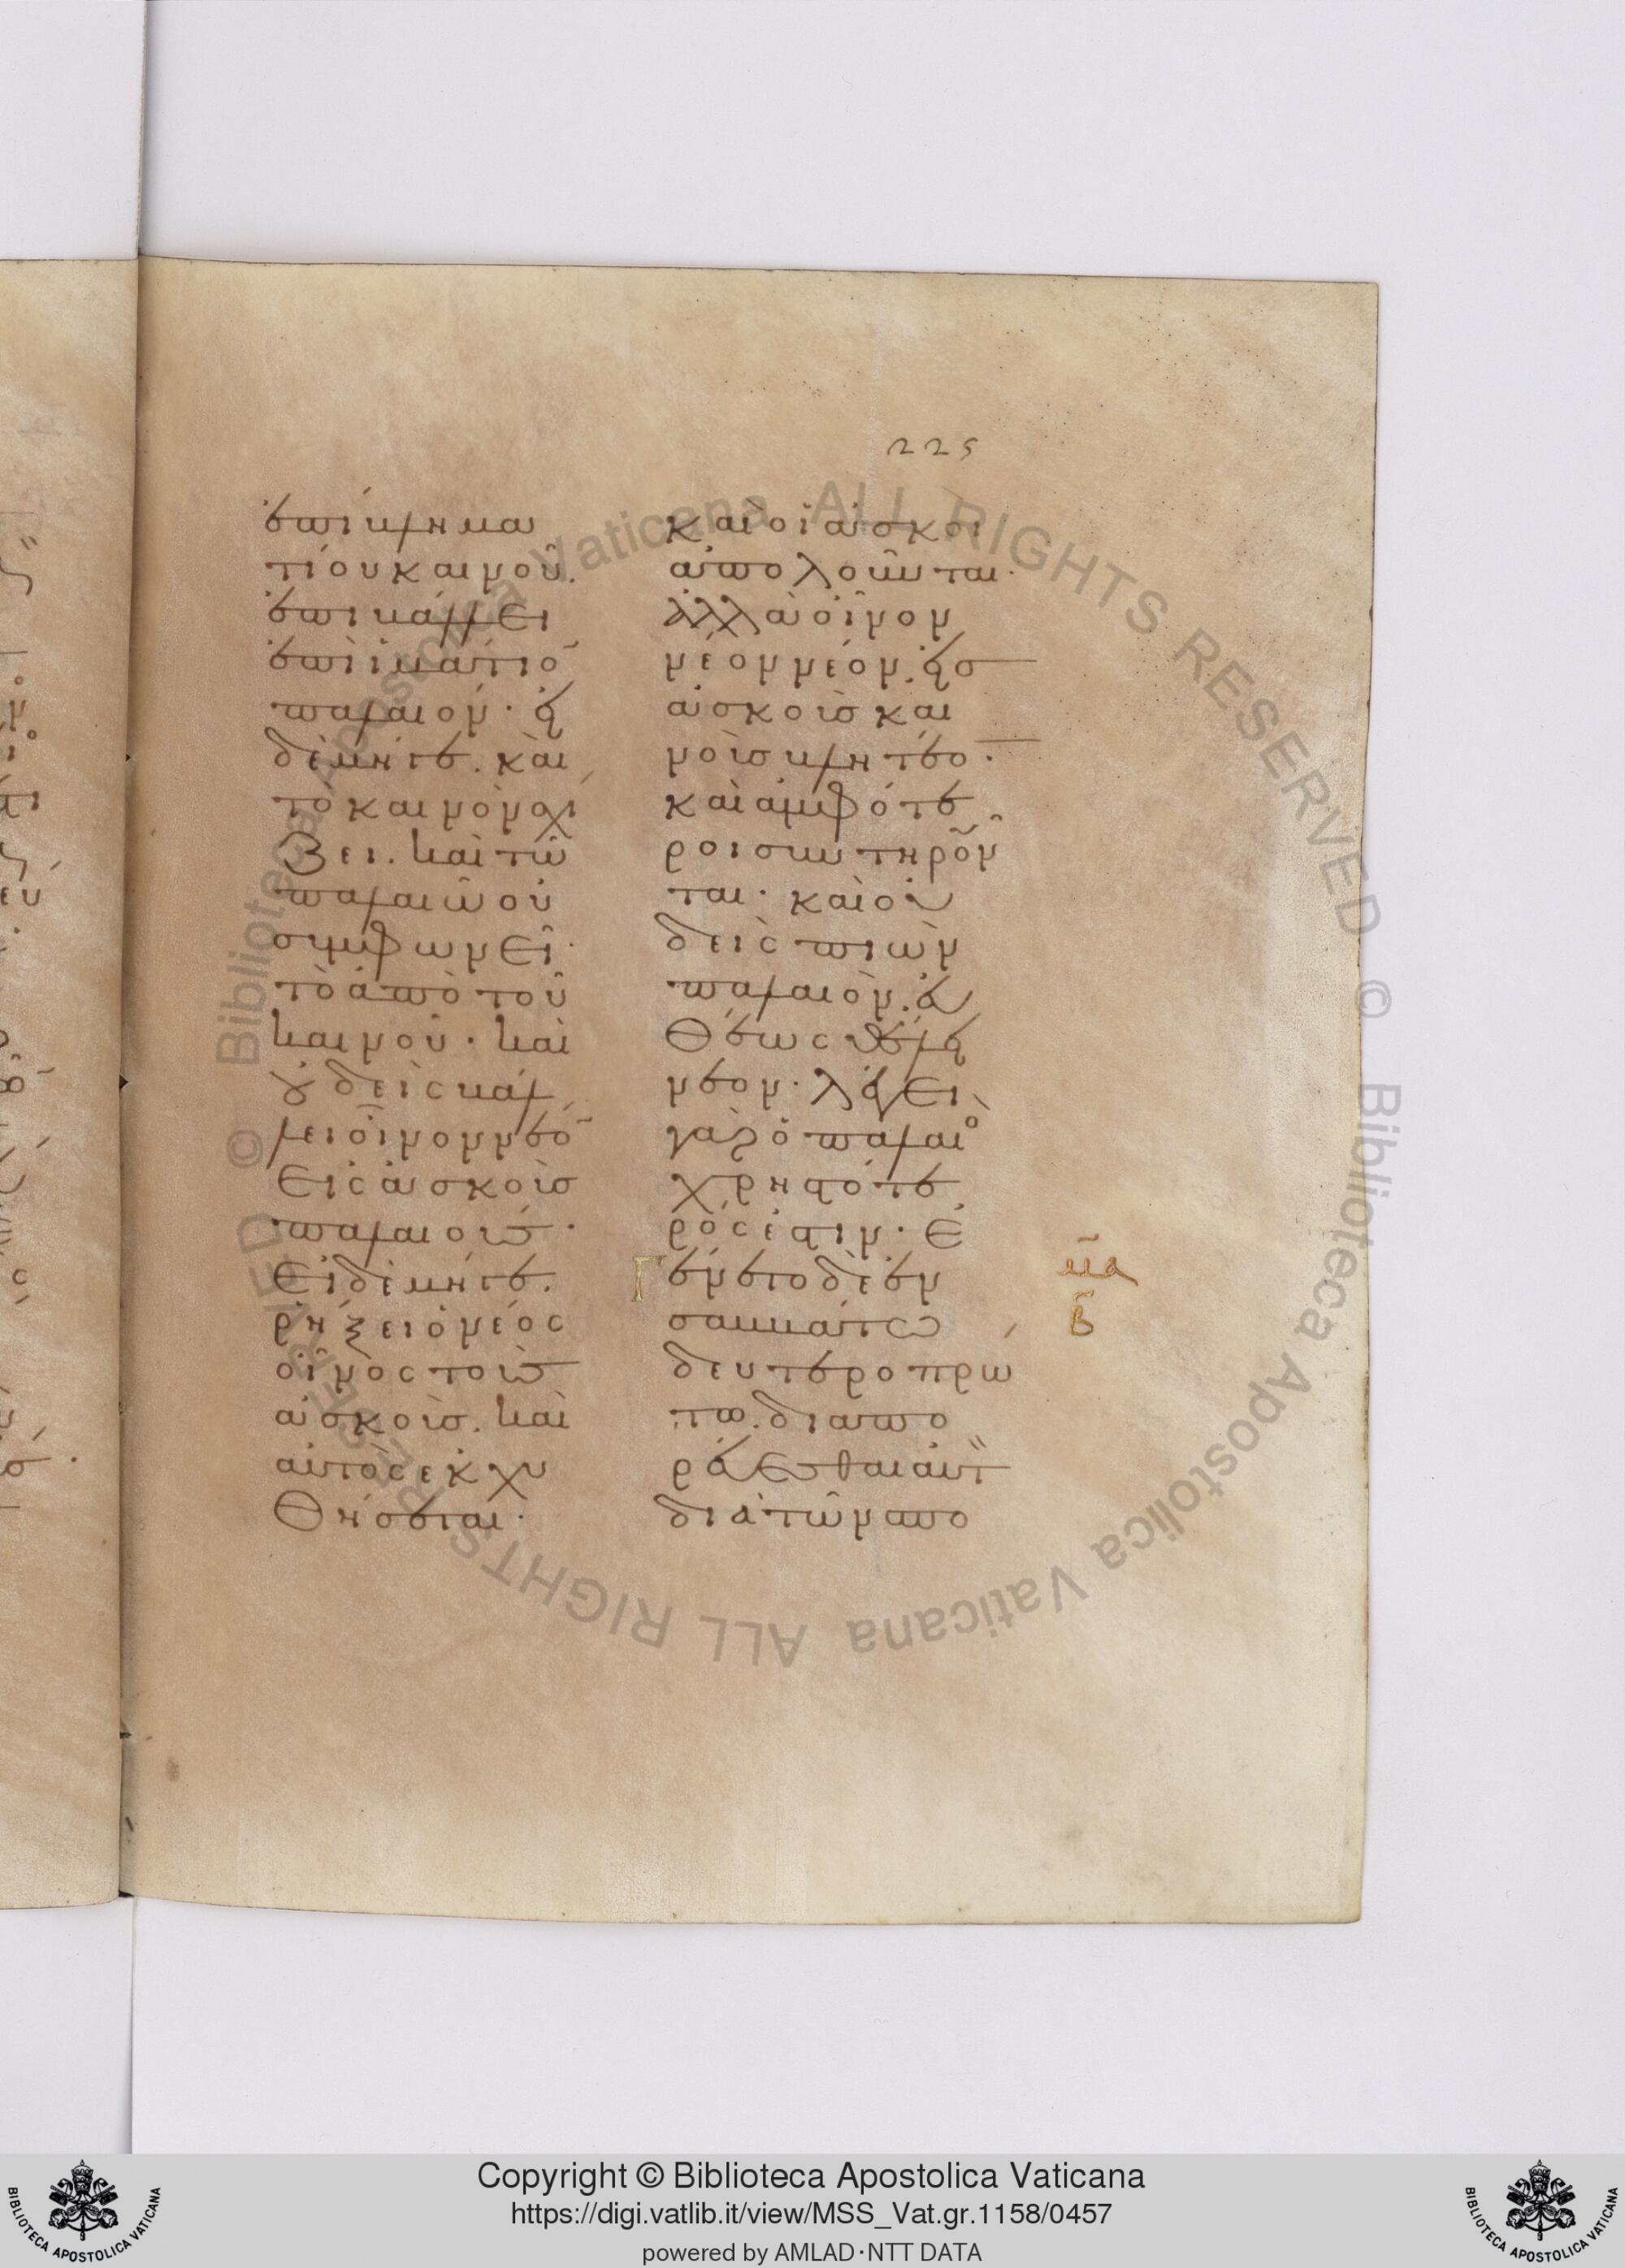 225
ἐπίβλημα ἱμα
τίου καινοῦ.
ἐπιβάλλει
ἐπὶ ἱμάτιο̅
παλαιόν· εἰ
δὲ μήγε. καὶ
τὸ καινὸν σχί
ζει. καὶ τῶ
παλαιῶ οὐ
συμφωνεῖ·
τὸ ἀπὸ τοῦ
καινοῦ· καὶ
οὐδεὶς βάλ
λει οἶνον νέο̅
εἰς ἀσκοὺς
παλαιούς·
εἰ δὲ μήγε.
ῥήξει ὁ νέος
οἶνος τοὺς
ἀσκούς. καὶ
αὐτὸς ἐκχυ
θήσεται·
καὶ οἱ ἀσκοὶ
ἀπολοῦνται·
ἀλλὰ οἶνον
νέον νέον. εἰς
ἀσκοὺς και
νοὺς βλητέο̅·
καὶ ἀμφότε
ροι συντηροῦν
ται· καὶ οὐ
δεὶς πιὼν
παλαιὸν. εὐ
θέως θέλει
νέον· λέγει
γὰρ ὁ παλαιὸ
χρηστότε
ρός ἐστιν· ἐ
Γένετο δὲ ἐν
σαββάτω
δευτεροπρώ
τω. διαπο
ρεύεσθαι αὐτ
διὰ τῶν σπο
μα
β
Copyright © Biblioteca Apostolica Vaticana
https://digi.vatlib.it/view/MSS_Vat.gr.1158/0457
powered by AMLAD·NTT DATA
BIBLIOTECA APOSTOLICA VATICANA
BIBLIOTECA APOSTOLICA VATICANA
© Biblioteca Apostolica Vaticana ALL RIGHTS RESERVED © Biblioteca Apostolica Vaticana ALL RIGHTS RESERVED